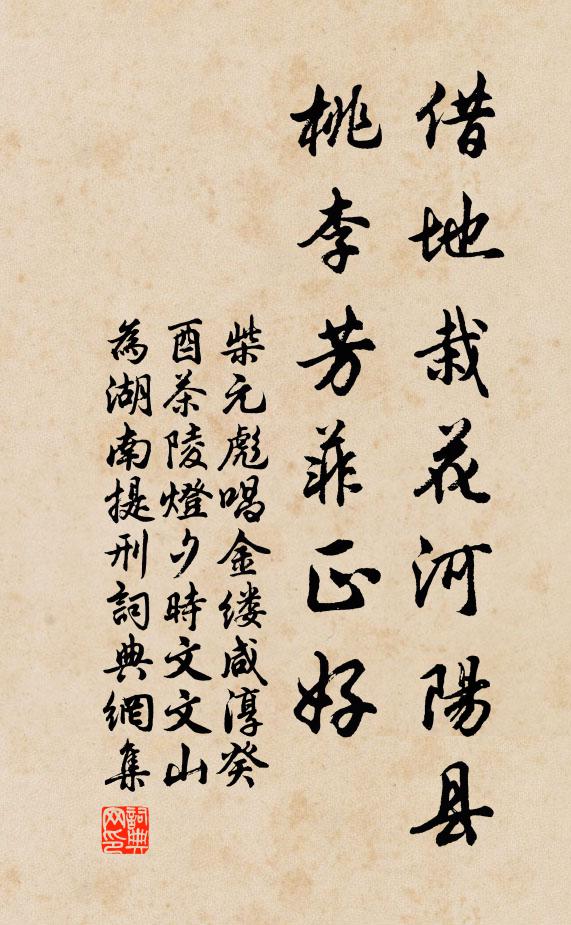 借地栽花河陽县
桃李芳菲正好
柴元彪唱金缕咸淳癸
酉茶陵燈夕時文文山
為湖南提刑詞典網集
詞典网印